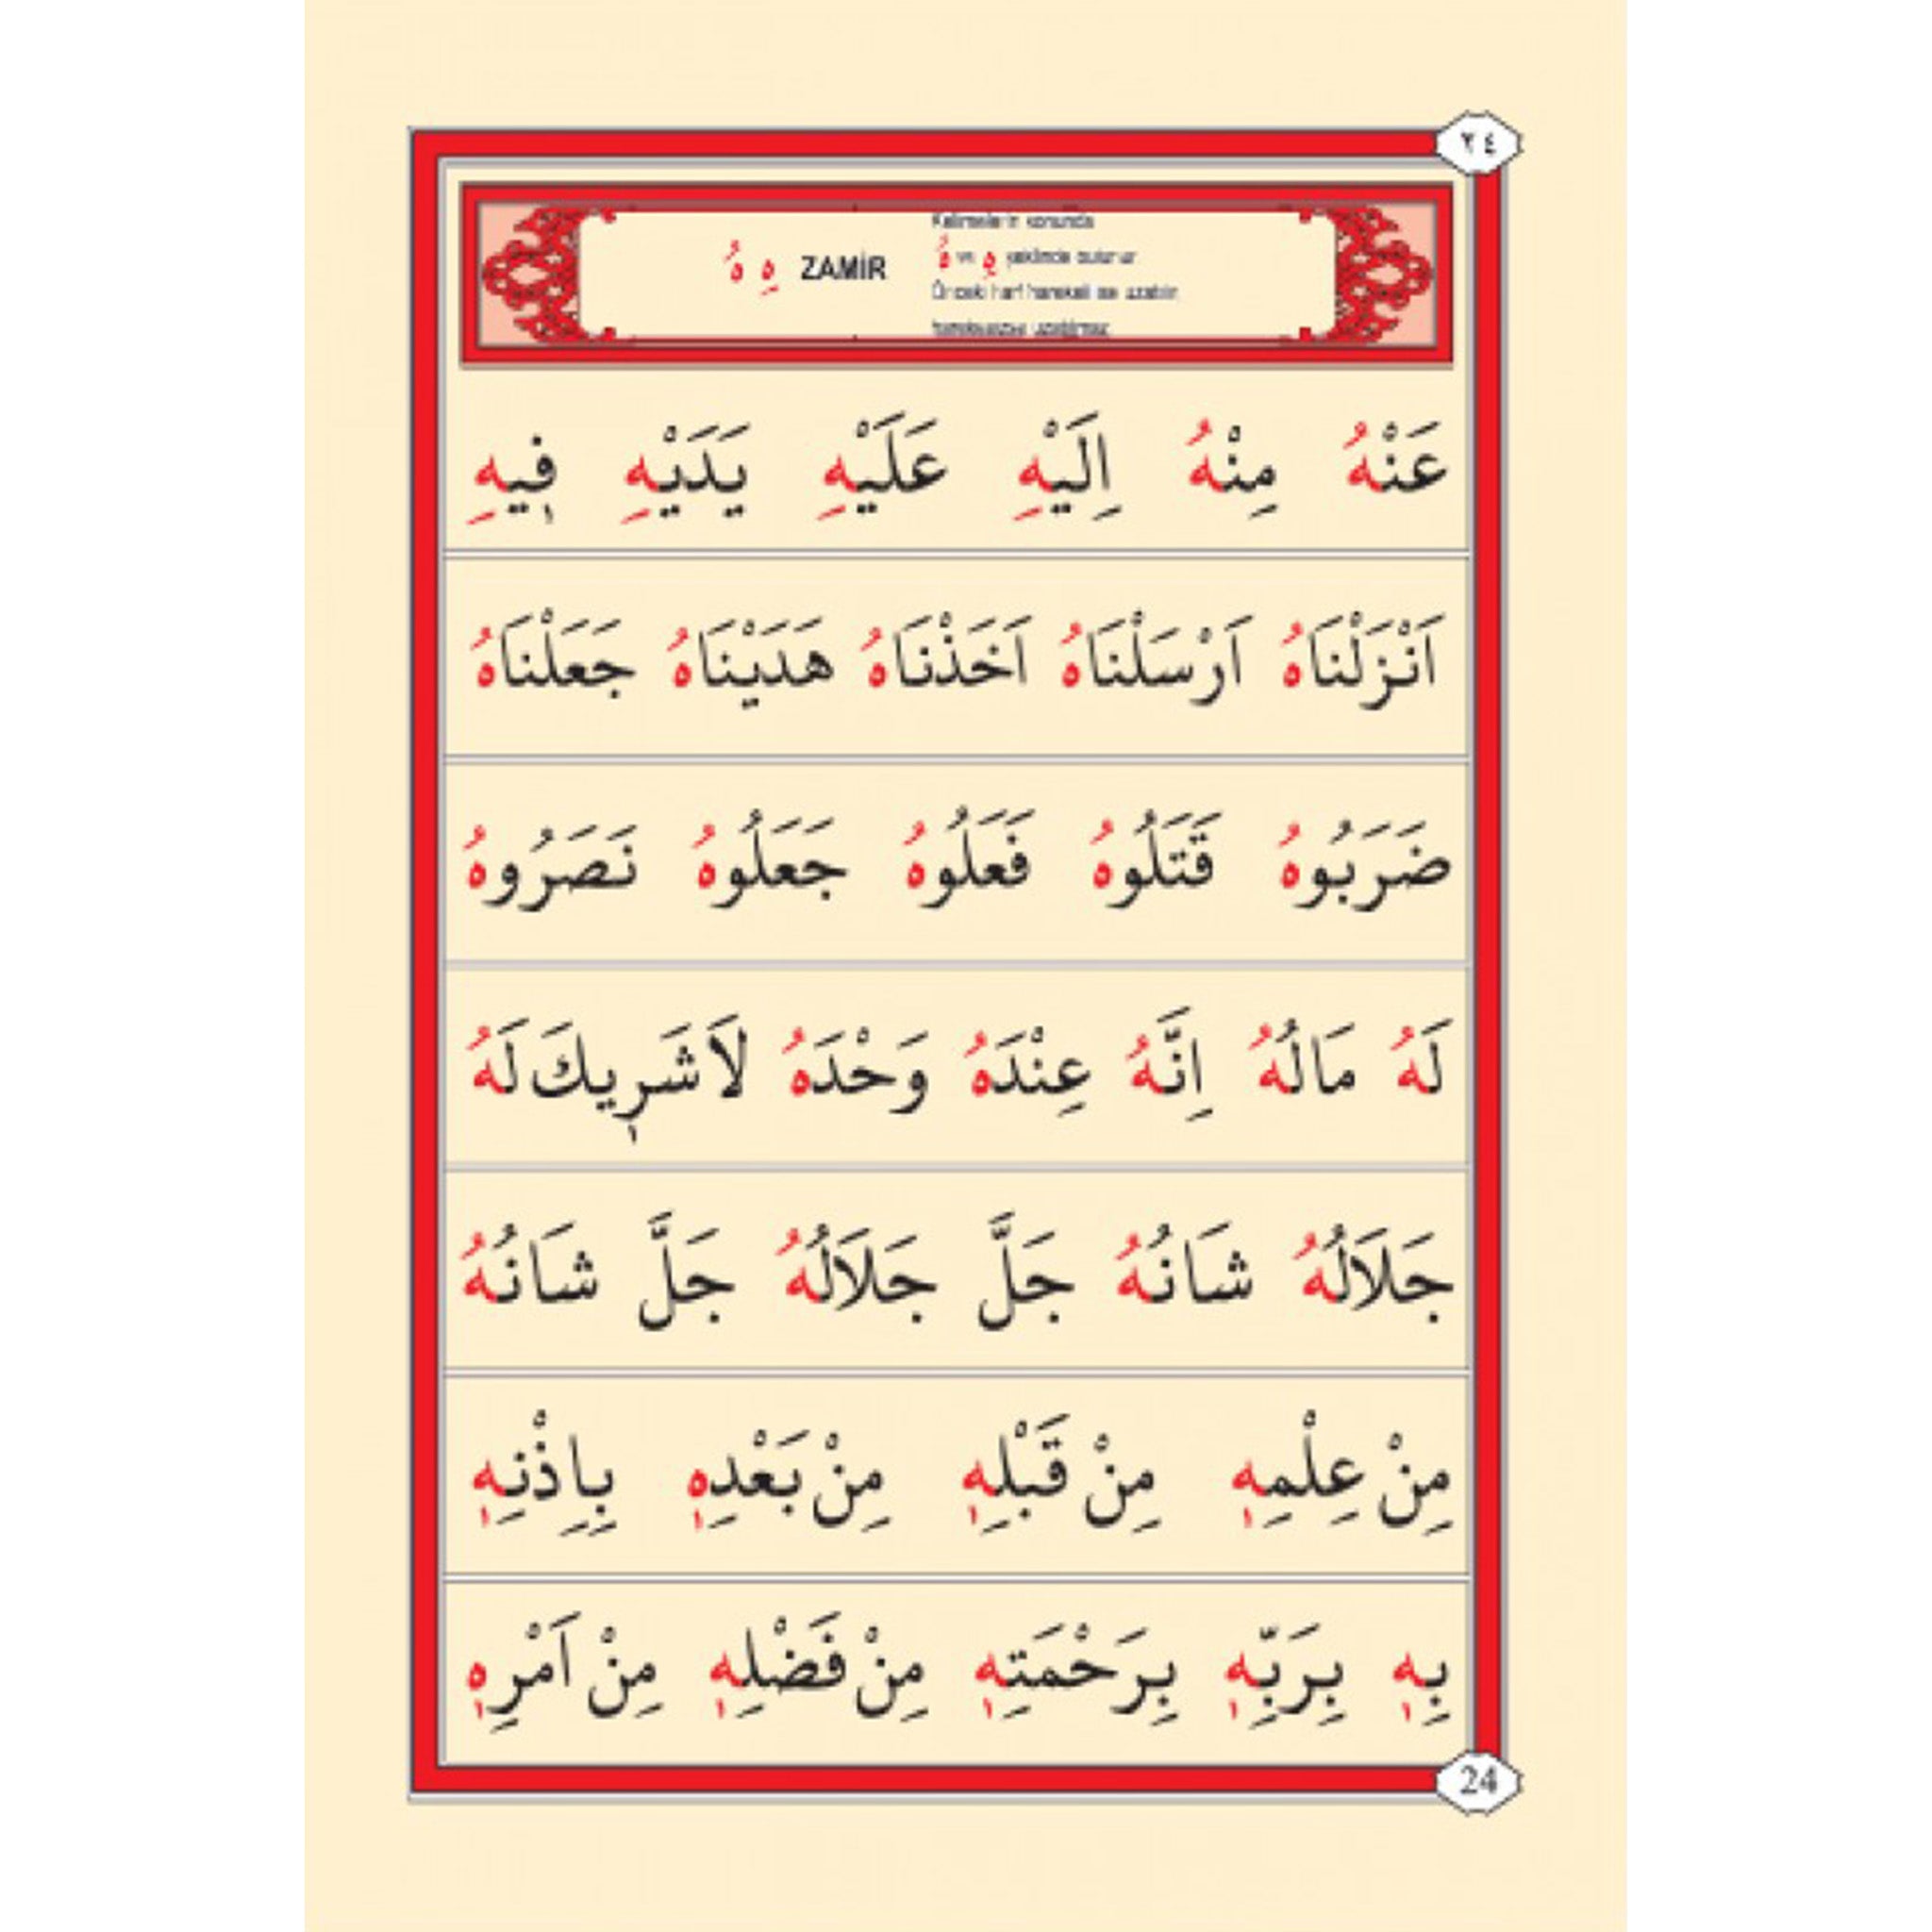 ٢٤
ZAMİR هِ هُ
Kelimelerin sonunda
هُ ve هِ şeklinde bulunur.
Önceki harf harekeli ise uzatılır,
harekesizse uzatılmaz.
عَنْهُ مِنْهُ اِلَيْهِ عَلَيْهِ يَدَيْهِ ف۪يهِ
اَنْزَلْنَاهُ اَرْسَلْنَاهُ اَخَذْنَاهُ هَدَيْنَاهُ جَعَلْنَاهُ
ضَرَبُوهُ قَتَلُوهُ فَعَلُوهُ جَعَلُوهُ نَصَرُوهُ
لَهُ مَالُهُ اِنَّهُ عِنْدَهُ وَحْدَهُ لَا شَر۪يكَ لَهُ
جَلَالُهُ شَانُهُ جَلَّ جَلَالُهُ جَلَّ شَانُهُ
مِنْ عِلْمِه۪ مِنْ قَبْلِه۪ مِنْ بَعْدِه۪ بِاِذْنِه۪
بِه۪ بِرَبِّه۪ بِرَحْمَتِه۪ مِنْ فَضْلِه۪ مِنْ اَمْرِه۪
24